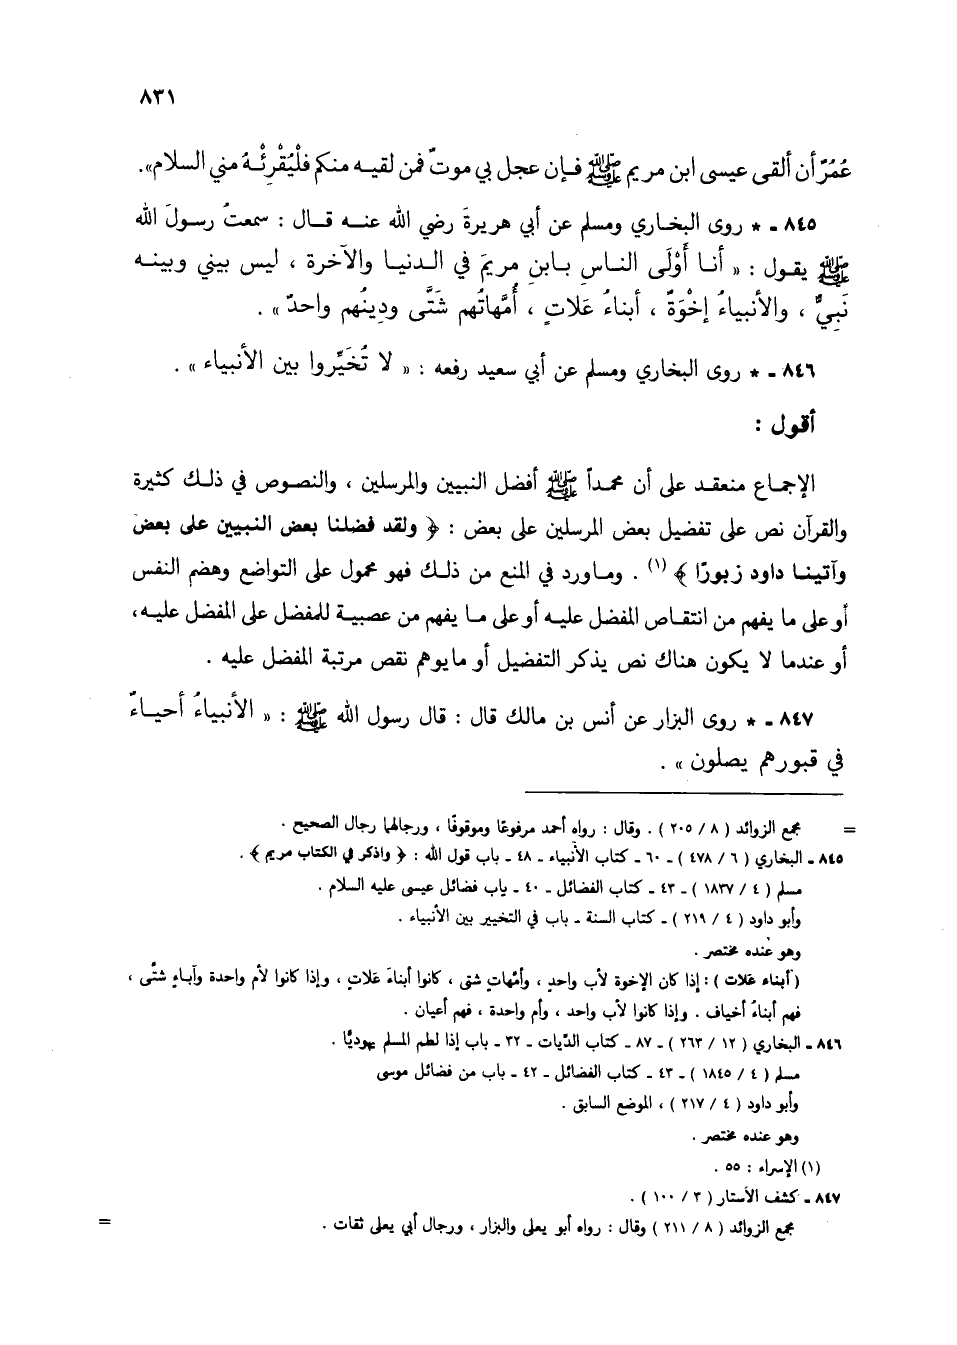 ٨٣١
عُمُرٌ أن ألقى عيسى ابن مريم ﷺ فـإن عجل بي موتٌ فمن لقيـه منكم فلْيُقْرِئْـهُ مني السلام».
٨٤٥ ـ * روى البخـاري ومسلم عن أبي هريرةَ رضي الله عنـه قـال : سمعتُ رسولَ الله
ﷺ يقـول : « أنـا أَوْلَى النـاسِ بـابنِ مريمَ في الـدنيـا والآخرة ، ليس بيني وبينـه
نَبِيٌّ ، والأنبياءُ إخْوَةٌ ، أبناءُ عَلاتٍ ، أُمَّهاتُهم شَتَّى ودِينُهم واحدٌ » .
٨٤٦ ـ * روى البخاري ومسلم عن أبي سعيد رفعه : « لا تُخَيِّروا بين الأنبياء » .
أقول :
الإجمـاع منعقـد على أن محمـداً ﷺ أفضل النبيين والمرسلين ، والنصـوص في ذلـك كثيرة
والقرآن نص على تفضيل بعض المرسلين على بعض : ﴿ ولقد فضلنا بعض النبيين على بعض
وآتينـا داود زبورًا ﴾ (١) . ومـاورد في المنع من ذلـك فهو محمول على التواضع وهضم النفس
أو على ما يفهم من انتقـاص المفضل عليـه أو على مـا يفهم من عصبيـة للمفضل على المفضل عليـه،
أو عندما لا يكون هناك نص يذكر التفضيل أو مايوهم نقص مرتبة المفضل عليه .
٨٤٧ ـ * روى البزار عن أنس بن مالك قال : قال رسول الله ﷺ : « الأنبياءُ أحيـاءٌ
في قبورهم يصلون » .
= مجمع الزوائد ( ٨ / ٢٠٥ ) . وقال : رواه أحمد مرفوعًا وموقوفًا ، ورجالهما رجال الصحيح .
٨٤٥ ـ البخاري ( ٦ / ٤٧٨ ) ـ ٦٠ ـ كتاب الأنبياء ـ ٤٨ ـ باب قول الله : ﴿ واذكر في الكتاب مريم ﴾ .
مسلم ( ٤ / ١٨٣٧ ) ـ ٤٣ ـ كتاب الفضائل ـ ٤٠ ـ باب فضائل عيسى عليه السلام .
وأبو داود ( ٤ / ٢١٩ ) ـ كتاب السنة ـ باب في التخيير بين الأنبياء .
وهو عنده مختصر .
( أبناء عَلات ) : إذا كان الإخوة لأب واحدٍ ، وأمَّهاتٍ شتى ، كانوا أبناءَ عَلاتٍ ، وإذا كانوا لأم واحدة وآبـاءٍ شتَّى ،
فهم أبناءُ أخياف . وإذا كانوا لأب واحد ، وأم واحدة ، فهم أعيان .
٨٤٦ ـ البخاري ( ١٢ / ٢٦٣ ) ـ ٨٧ ـ كتاب الدِّيات ـ ٣٢ ـ باب إذا لطم المسلم يهوديًّا .
مسلم ( ٤ / ١٨٤٥ ) ـ ٤٣ ـ كتاب الفضائل ـ ٤٢ ـ باب من فضائل موسى
وأبو داود ( ٤ / ٢١٧ ) ، الموضع السابق .
وهو عنده مختصر .
(١) الإسراء : ٥٥ .
٨٤٧ ـ كشف الأستار ( ٣ / ١٠٠ ) .
مجمع الزوائد ( ٨ / ٢١١ ) وقال : رواه أبو يعلى والبزار ، ورجال أبي يعلى ثقات . =